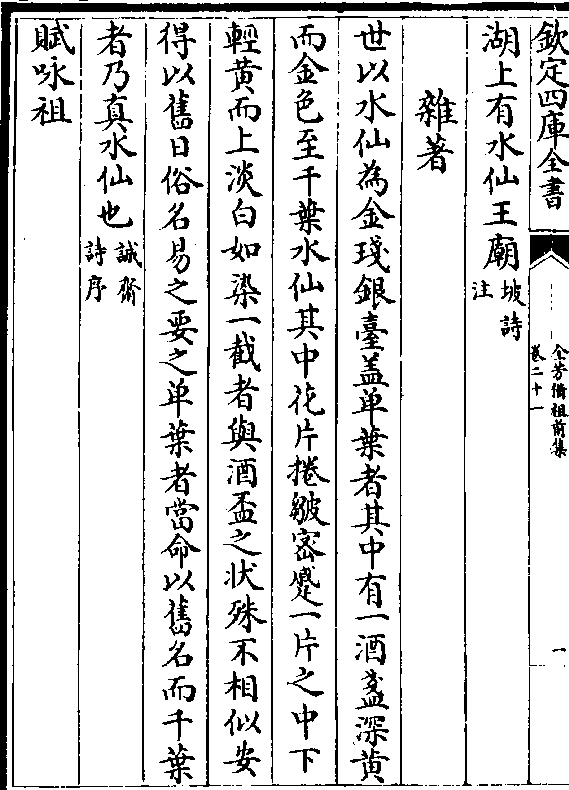 欽定四庫全書
全芳備祖前集
卷二十一
一
湖上有水仙王廟坡詩注
雜著
世以水仙為金琖銀臺蓋单葉者其中有一酒盞深黄
而金色至千葉水仙其中花片捲皺密蹙一片之中下
輕黄而上淡白如染一截者與酒盃之状殊不相似安
得以舊日俗名易之要之单葉者當命以舊名而千葉
者乃真水仙也誠齋詩序
賦咏祖